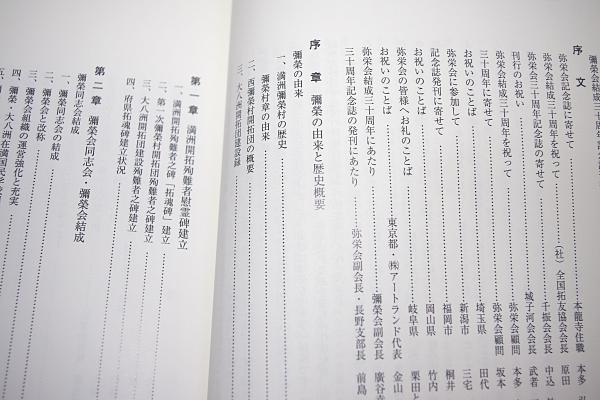 彌榮会結成三十周年記念誌
序文
弥栄会記念誌に寄せて 本龍寺住職 本多
弥栄会結成三十周年を祝って (社)全国拓友協会会長 原田
弥栄会三十周年記念誌の寄せて 千振会会長 中込
刊行のお祝い 城子河会会長 武者
弥栄会結成三十周年を祝って 弥栄会顧問 本多
三十周年に寄せて 弥栄会顧問 坂本
お祝いのことば 埼玉県 田代
弥栄会に参加して 新潟市 三宅
記念誌発刊に寄せて 福岡市 桐井
お祝いのことば 岡山県 竹内
弥栄会の皆様へお礼のことば 岐阜県 栗田と
お祝いのことば 東京都・㈱アートランド代表 金山
弥栄会結成三十周年にあたり 彌榮会副会長 廣谷
三十周年記念誌の発刊にあたり 弥栄会副会長・長野支部長 前島
序章 彌榮の由来と歴史概要
彌榮の由来
一、満洲彌榮村の歴史
彌榮村章の由来
二、西彌榮村開拓団の概要
三、大八洲開拓団建設録
第一章 満洲開拓殉難者慰霊碑建立
一、満洲開拓殉難者之碑「拓魂碑」建立
二、第一次彌榮村開拓団殉難者之碑建立
三、大八洲開拓団建設殉難者之碑建立
四、府県拓魂碑建立状況
第二章 彌榮会同志会・彌榮会結成
彌榮同志会結成
一、彌榮同志会の結成
二、彌榮会と改称
三、彌榮会組織の運営強化と充実
四、彌榮・大八洲在満国民学校